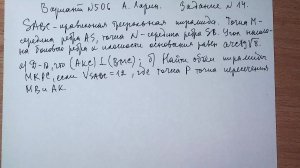 Вариант №506 А. Ларин. Задание №14.
SABC - правильная треугольная пирамида. Точка M-
середина ребра AS, точка N - середина ребра SB. Угол накло-
на бокового ребра к плоскости основания равен arctg√8.
а) Д-ть, что (AKC) ⊥ (BMC); б) Найти объём пирамиды
MKPC, если V SABC = 12, где точка P точка пересечения
MB и AK.